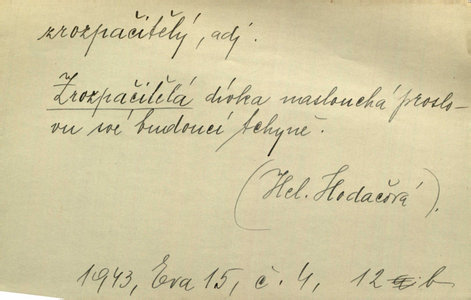 zrozpačitělý, adj.
Zrozpačitělá dívka naslouchá proslo-
vu své budoucí tchyně.
(Hel. Hodačová).
1943, Eva 15, č. 4, 12 b